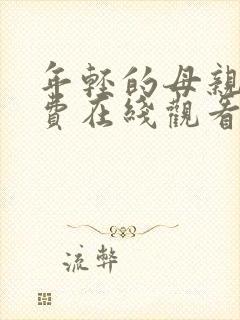 年轻的母親
費在綫觀看
流弊